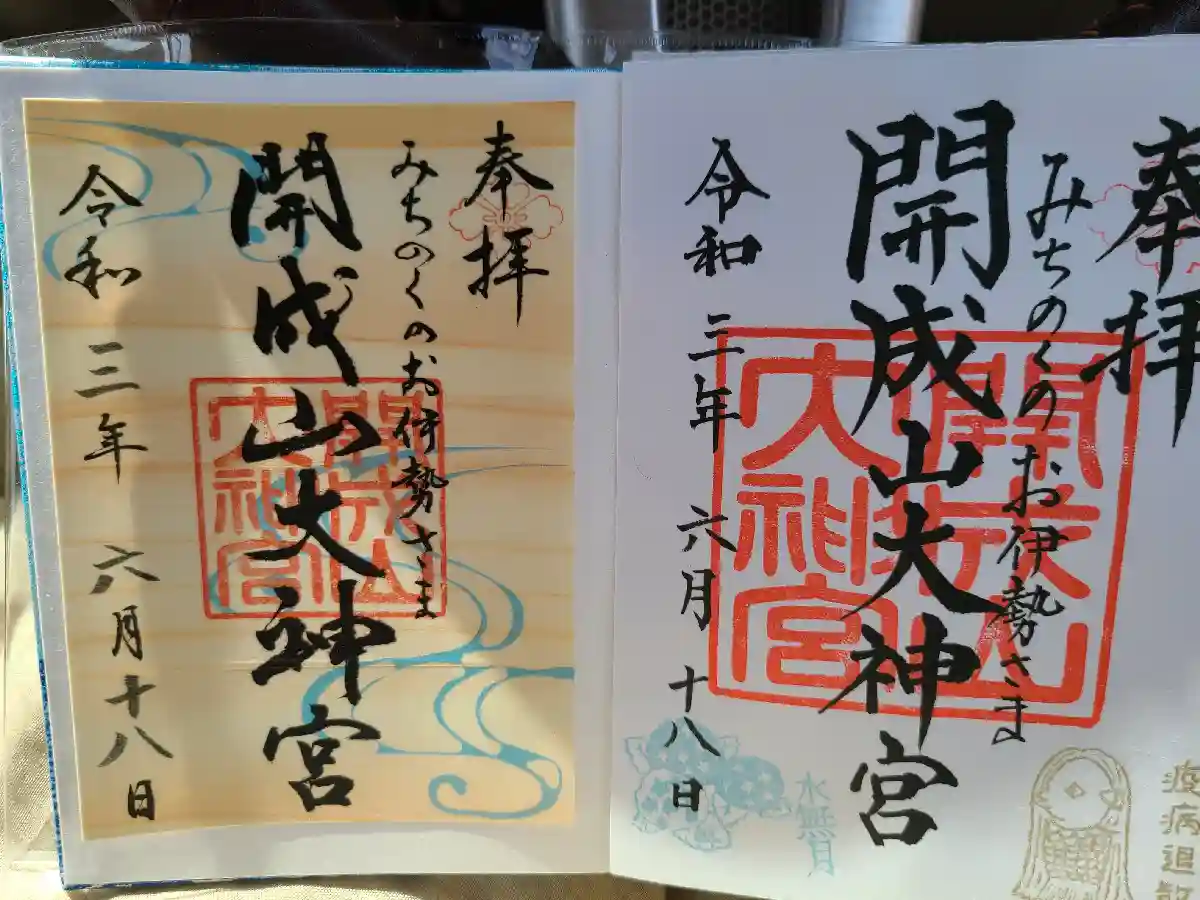 奉拝
みちのくのお伊勢さま
開成山大神宮
令和三年六月十八日
開成山大神宮
奉拝
みちのくのお伊勢さま
開成山大神宮
令和三年六月十八日
開成山大神宮
水無月
疫病退散